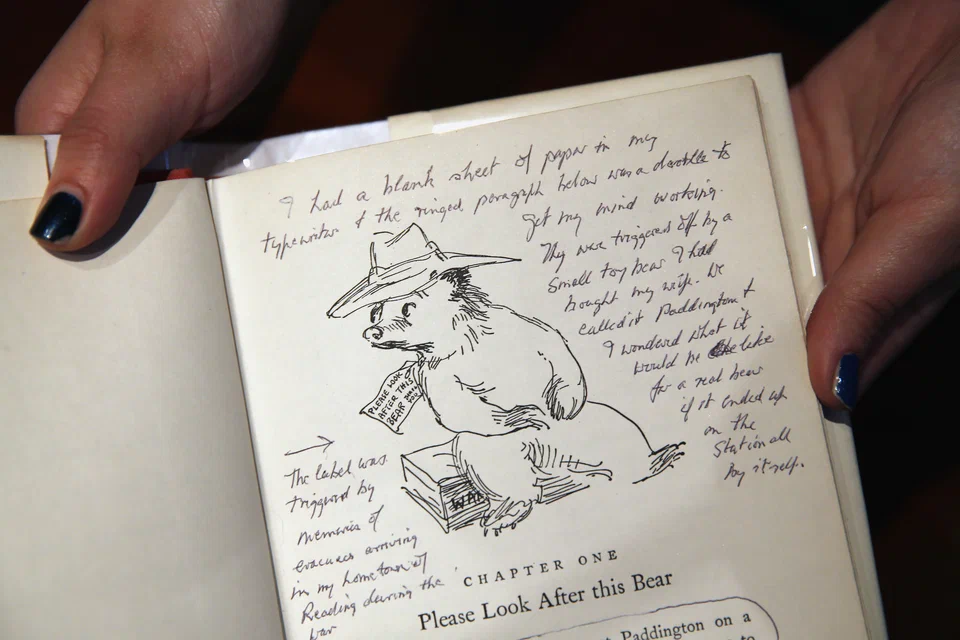 I had a blank sheet of paper in my
typewriter & the ringed paragraph below was a doodle to
get my mind working.
They were triggered off by a
small toy bear I had
bought my wife. We
called it Paddington &
I wondered what it
would be like
for a real bear
if it ended up
on the
Station all
by itself.
PLEASE LOOK
AFTER THIS
BEAR
WAN
→
The label was
triggered by
memories of
evacuees arriving
in my hometown of
Reading during the
War
CHAPTER ONE
Please Look After this Bear
Paddington on a
to